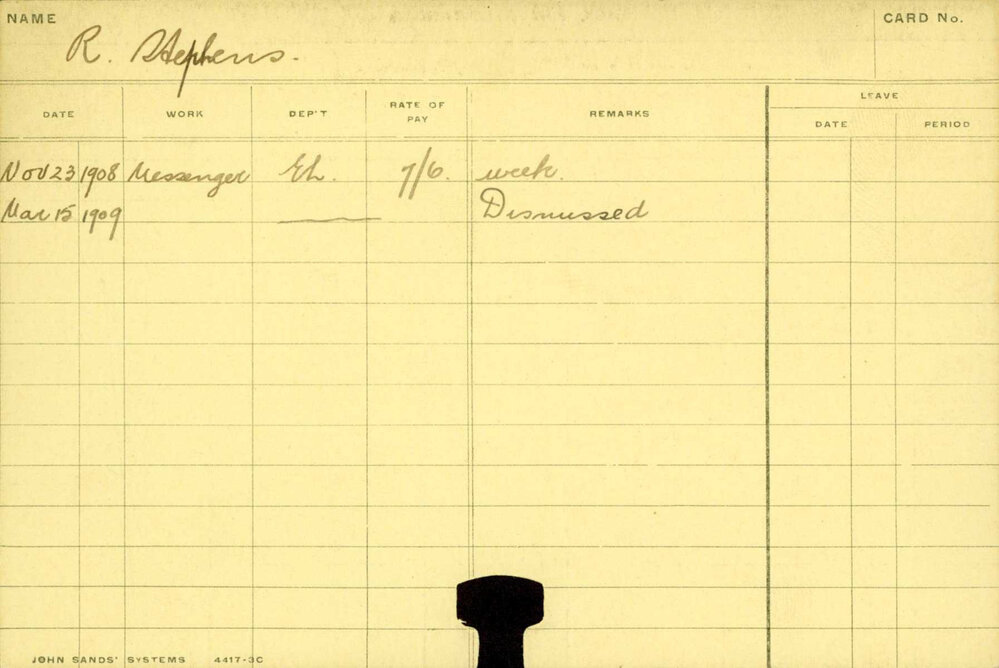 NAME CARD No.
R. Stephens.
LEAVE
DATE WORK DEP'T RATE OF PAY REMARKS DATE PERIOD
Nov 23 1908 Messenger EL. 7/6. week.
Mar 15 1909 Dismissed
JOHN SANDS' SYSTEMS 4417-3C